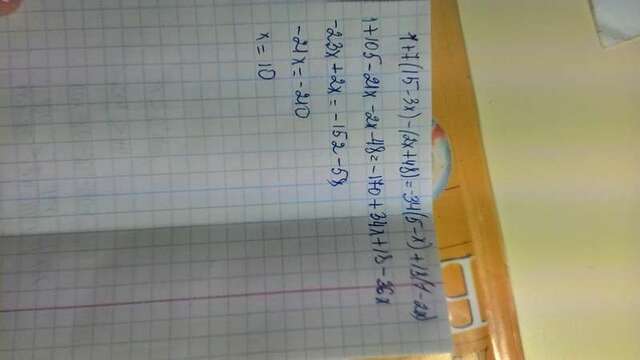 1+7(15-3x)-(2x+48)=-34(5-x)+18(1-2x)
1+105-21x-2x-48=-170+34x+18-36x
-23x+2x=-152-58
-21x=-210
x=10